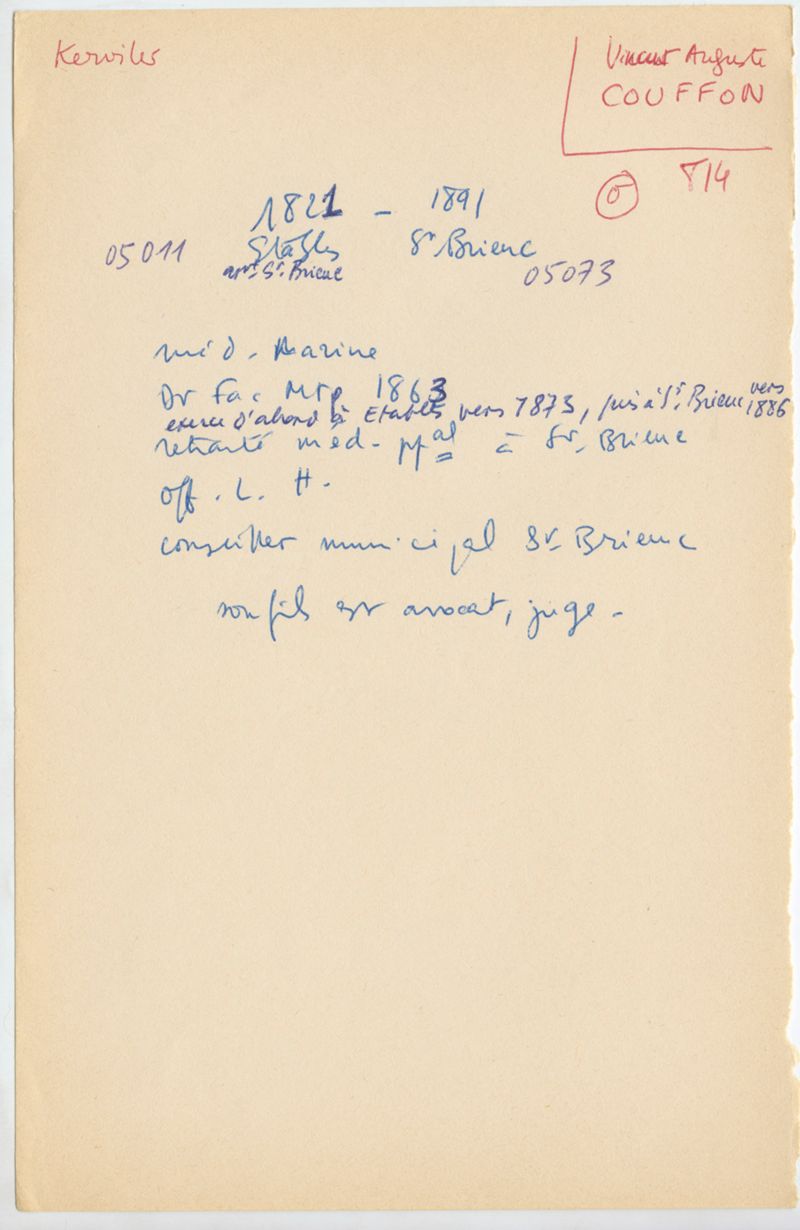 Kerviler
Vincent Auguste
COUFFON
814
1821 - 1891
05011 Etables St Brieuc
arrt St. Brieuc 05073
méd. Marine
Dr Fac Mtp 1863
exerce d'abord à Etables vers 1873, puis à St. Brieuc vers 1886
retraité méd. ppal à St. Brieuc
Off. L. H.
conseiller municipal St Brieuc
son fils est avocat, juge.